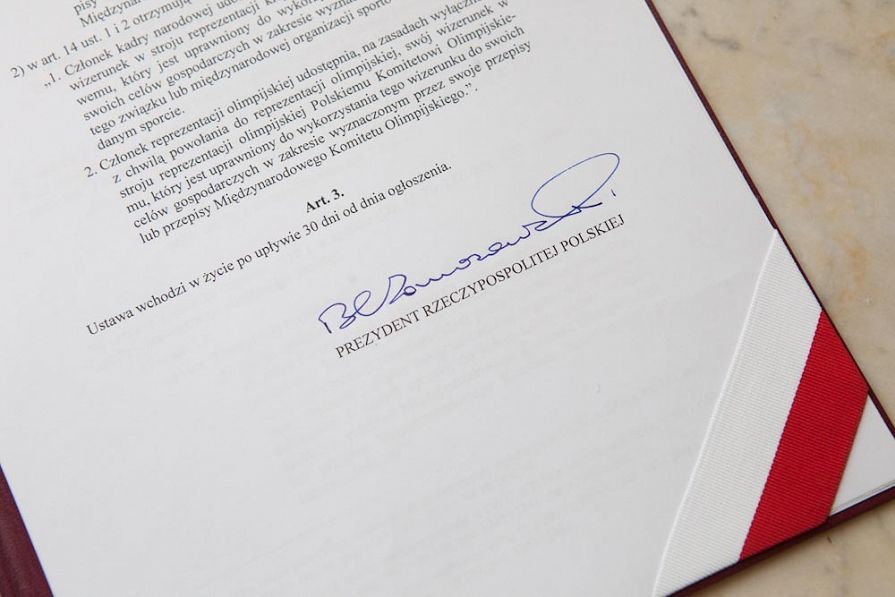 pisy
Międzynar
2) w art. 14 ust. 1 i 2 otrzymują
„1. Członek kadry narodowej udos
wizerunek w stroju reprezentacji k
wemu, który jest uprawniony do wykorzy
swoich celów gospodarczych w zakresie wyzna
tego związku lub międzynarodowej organizacji sporto
danym sporcie.
2. Członek reprezentacji olimpijskiej udostępnia, na zasadach wyłączn
z chwilą powołania do reprezentacji olimpijskiej, swój wizerunek w
stroju reprezentacji olimpijskiej Polskiemu Komitetowi Olimpijskie-
mu, który jest uprawniony do wykorzystania tego wizerunku do swoich
celów gospodarczych w zakresie wyznaczonym przez swoje przepisy
lub przepisy Międzynarodowego Komitetu Olimpijskiego.”.
Art. 3.
Ustawa wchodzi w życie po upływie 30 dni od dnia ogłoszenia.
PREZYDENT RZECZYPOSPOLITEJ POLSKIEJ